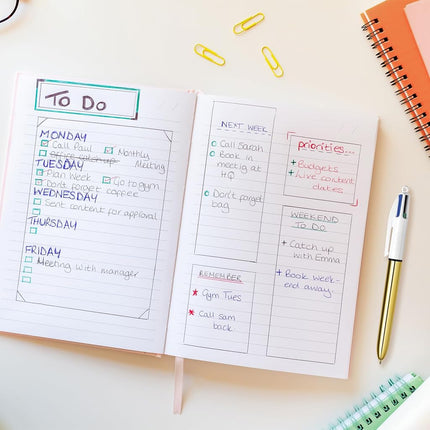 To Do
MONDAY
Call Paul Monthly
Office catch-up Meeting
TUESDAY
Plan Week Go to gym
Don't forget coffee
WEDNESDAY
Sent content for approval
THURSDAY
FRIDAY
Meeting with manager
NEXT WEEK
Call Sarah
Book in
meetig at
HQ
Don't forget
bag
REMEMBER
Gym Tues
Call sam
back
priorities...
Budgets
Live content
dates
WEEKEND
TO DO
Catch up
with Emma
Book week-
end away.